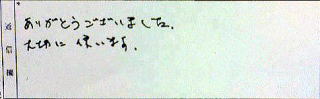 ありがとうございました.
大切に使います.
返信欄